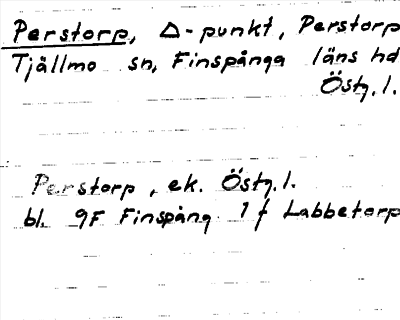 Perstorp, Δ-punkt, Perstorp
Tjällmo sn, Finspånga läns hd
Östg. l.
Perstorp, ek. Östg. l.
bl. 9F Finspång 1 f Labbetorp